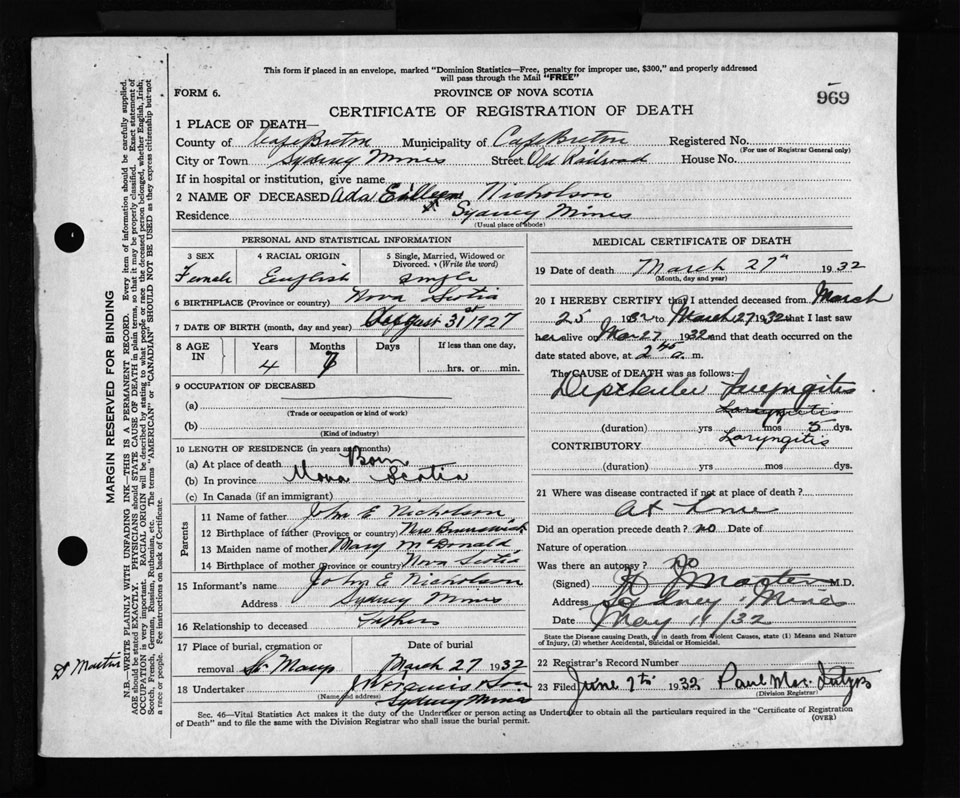 This form if placed in an envelope, marked "Dominion Statistics—Free, penalty for improper use, $300," and properly addressed
will pass through the Mail "FREE"
FORM 6.
PROVINCE OF NOVA SCOTIA
969
CERTIFICATE OF REGISTRATION OF DEATH
1 PLACE OF DEATH—
County of Cape Breton Municipality of Cape Breton Registered No.
(For use of Registrar General only)
City or Town Sydney Mines Street Old Railroad House No.
If in hospital or institution, give name
2 NAME OF DECEASED Ada Eilleen Nicholson
Residence Sydney Mines
(Usual place of abode)
PERSONAL AND STATISTICAL INFORMATION
3 SEX 4 RACIAL ORIGIN 5 Single, Married, Widowed or
Divorced. (Write the word)
Female English single
6 BIRTHPLACE (Province or country) Nova Scotia
7 DATE OF BIRTH (month, day and year) August 31st 1927
8 AGE IN Years Months Days If less than one day,
4 7 hrs. or min.
9 OCCUPATION OF DECEASED
(a)
(Trade or occupation or kind of work)
(b)
(Kind of industry)
10 LENGTH OF RESIDENCE (in years and months)
(a) At place of death Born
(b) In province Nova Scotia
(c) In Canada (if an immigrant)
Parents
11 Name of father John E Nicholson
12 Birthplace of father (Province or country) New Brunswick
13 Maiden name of mother Mary McDonald
14 Birthplace of mother (Province or country) Nova Scotia
15 Informant's name John E Nicholson
Address Sydney Mines
16 Relationship to deceased Father
17 Place of burial, cremation or Date of burial
removal St Marys March 27 1932
18 Undertaker & Son
(Name and address) Sydney Mines
MEDICAL CERTIFICATE OF DEATH
19 Date of death March 27th 1932
(Month, day and year)
20 I HEREBY CERTIFY that I attended deceased from March
25 1932 to March 27 1932 that I last saw
her alive on Mar 27 1932 and that death occurred on the
date stated above, at 2 45 a. m.
The CAUSE of DEATH was as follows:
Laryngitis
(duration) yrs mos 5 dys.
CONTRIBUTORY Laryngitis
(duration) yrs mos dys.
21 Where was disease contracted if not at place of death?
At home
Did an operation precede death? no
Nature of operation
Was there an autopsy? no
(Signed) M.D.
Address Sydney Mines
Date May /32
State the Disease causing Death, or in death from Violent Causes, state (1) Means and Nature
of Injury, (2) whether Accidental, Suicidal or Homicidal.
22 Registrar's Record Number
23 Filed June 7th 1932 Paul
(Division Registrar)
Sec. 46—Vital Statistics Act makes it the duty of the Undertaker or person acting as Undertaker to obtain all the particulars required in the "Certificate of Registration
of Death" and to file the same with the Division Registrar who shall issue the burial permit.
(OVER)
MARGIN RESERVED FOR BINDING
N.B.—WRITE PLAINLY WITH UNFADING INK—THIS IS A PERMANENT RECORD. Every item of information should be carefully supplied.
AGE should be stated EXACTLY. PHYSICIANS should STATE CAUSE OF DEATH in plain terms, so that it may be properly classified. Exact statement of
OCCUPATION is very important. RACIAL ORIGIN will be described by stating to what people or race the deceased person belonged, whether English, Irish,
Scotch, French, German, Russian, Ruthenian, etc. The terms "AMERICAN" or "CANADIAN" SHOULD NOT BE USED as they express citizenship but not
a race or people. See instructions on back of Certificate.